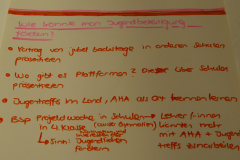 Wie könnte man Jugendbeteiligung
fördern?
• Vortrag von jubel Backstage in anderen Schulen
präsentieren
• Wo gibt es Plattformen? Diese über Schulen
präsentieren
• Jugendtreffs im Land, AHA als Ort kennenlernen
• Bsp Projektwoche in Schulen → Lehrer/innen
in 4. Klasse könnten mehr
mit AHA + Jugend
↳ Sinn: Jugendlichen treffs zusammenarbeiten
fördern